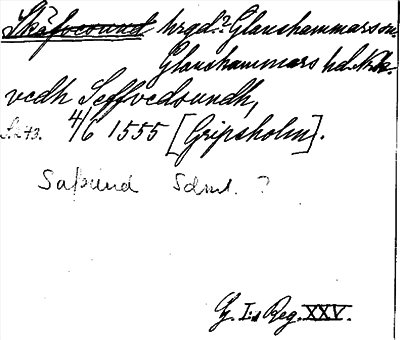 Skäfvesund hrgd? Glanshammars sn.
Glanshammars hd. Nrk.
vedh Seffvedsundh,
S. 273. 4/6 1555 [Gripsholm].
Säfsund Sdml. ?
G. I:s Reg. XXV.